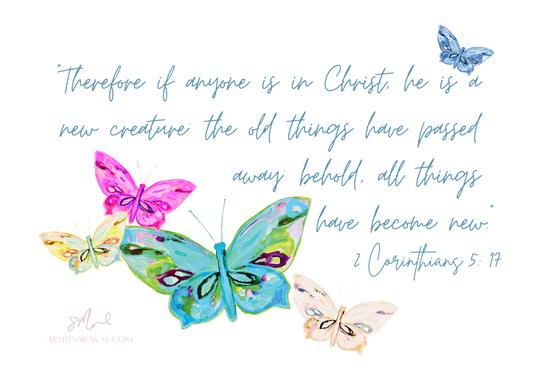 "Therefore if anyone is in Christ, he is a
new creature: the old things have passed
away; behold, all things
have become new."
2 Corinthians 5: 17
ARTBYSARAKAY.COM